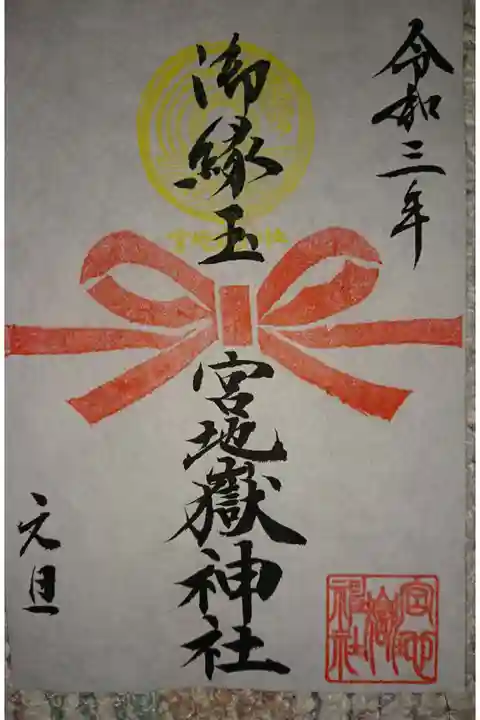 令和三年
御縁玉
宮地嶽神社
元旦
宮地
嶽
神社